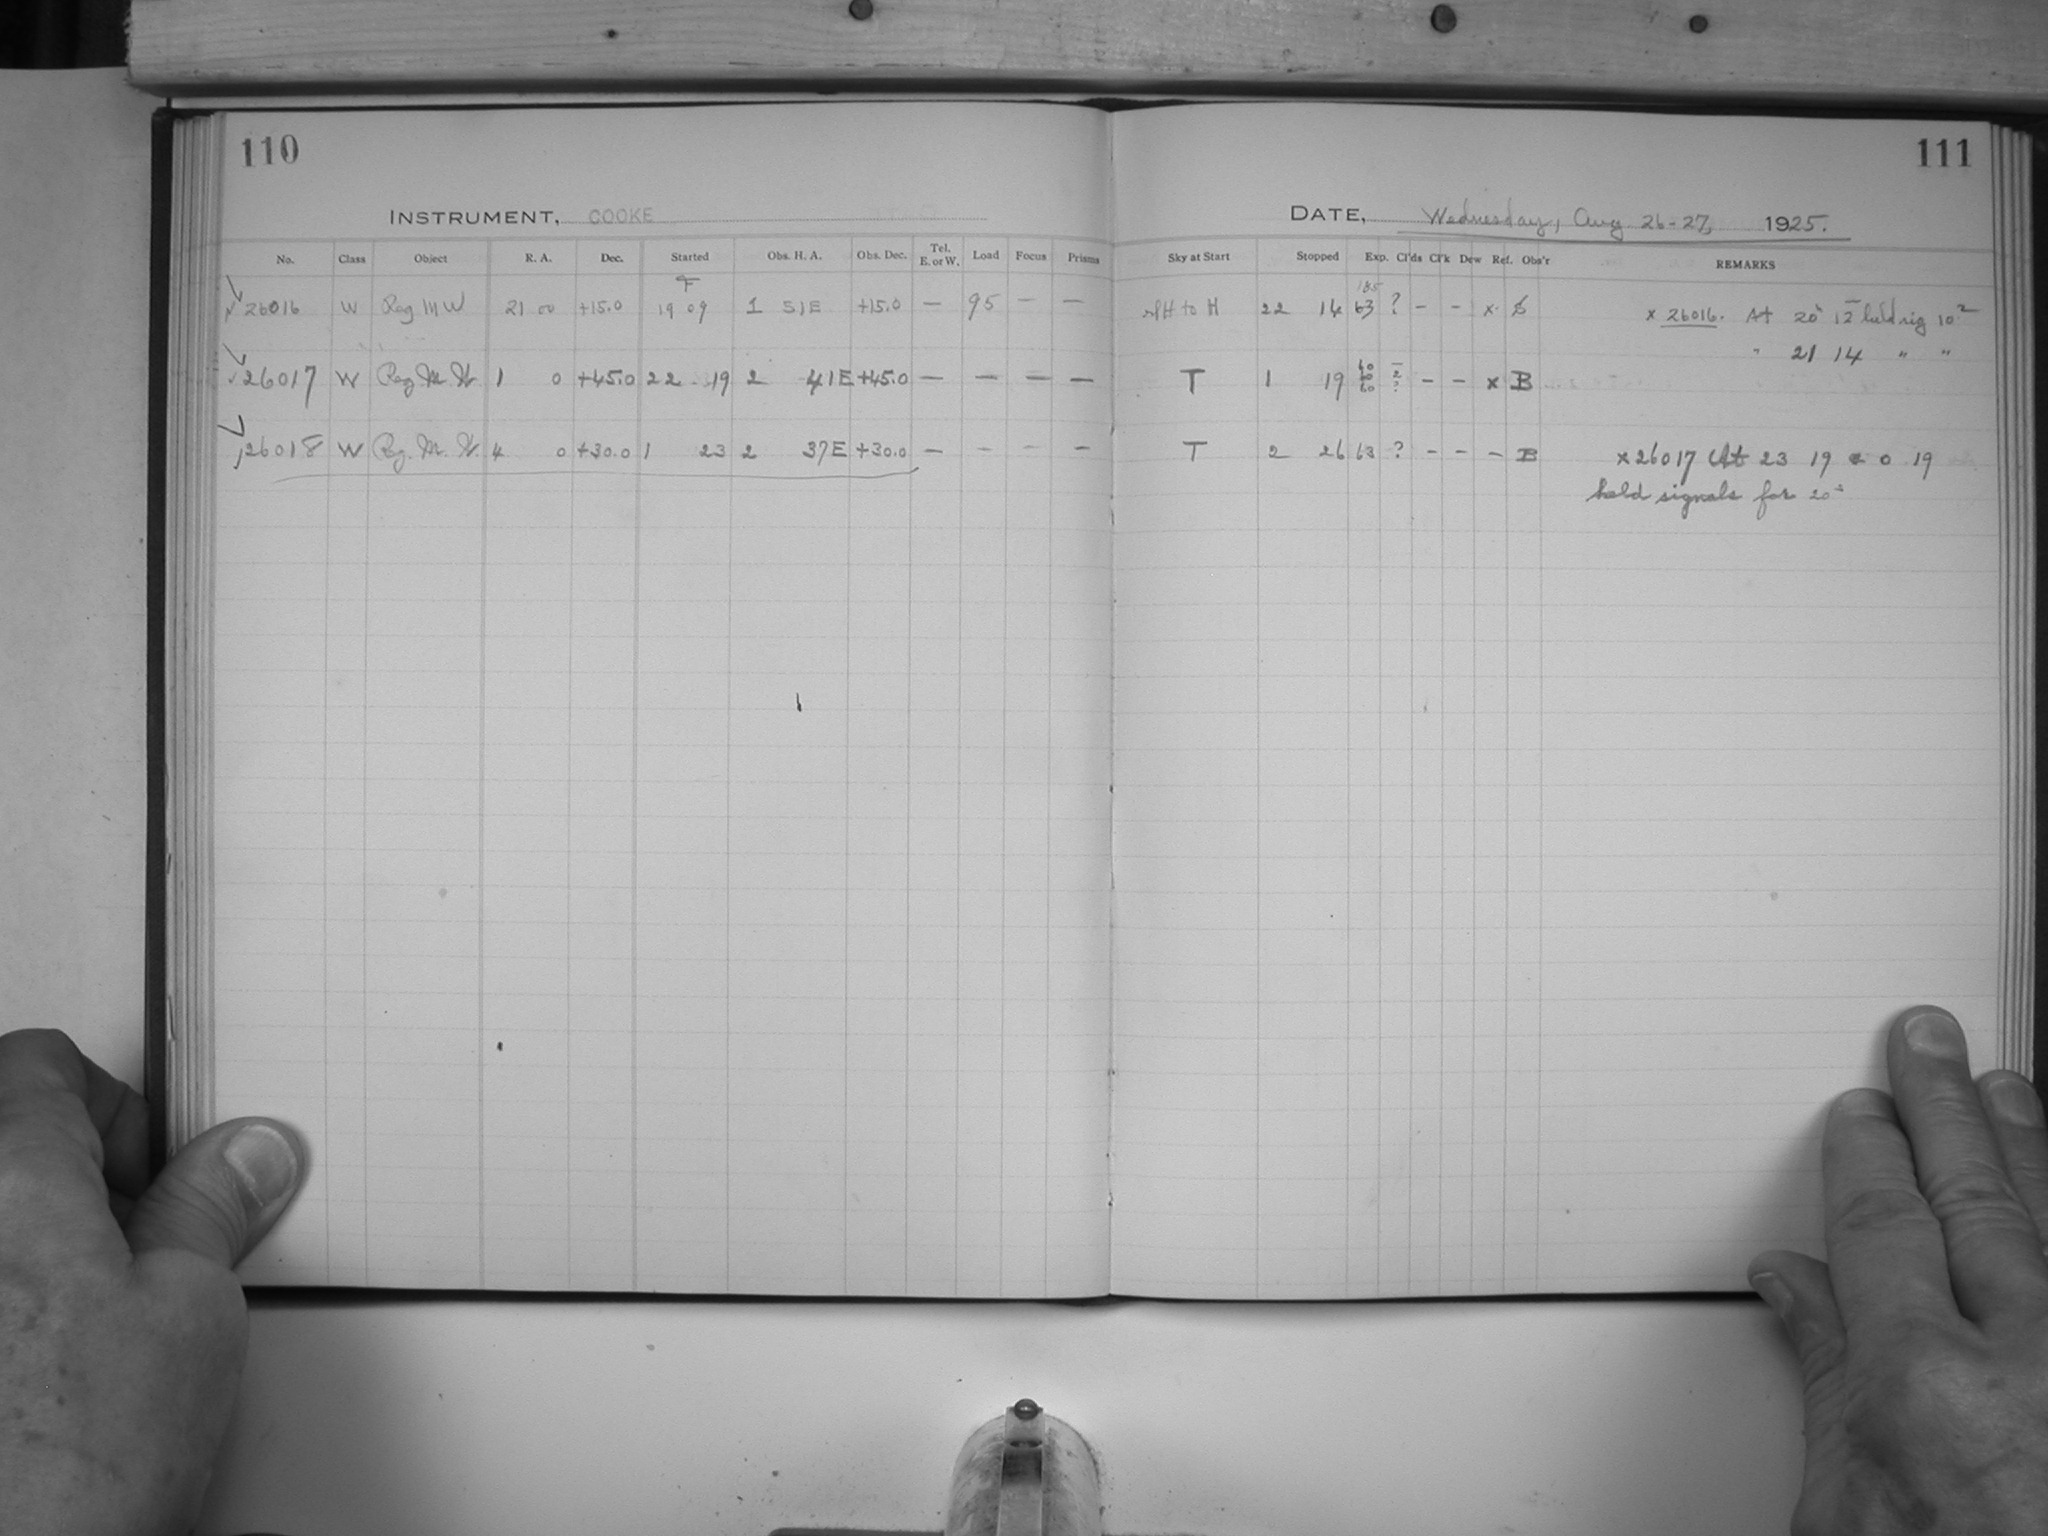 110
111
INSTRUMENT, COOKE
DATE, Wednesday, Aug 26-27, 1925.
No. Class Object R. A. Dec. Started Obs. H. A. Obs. Dec. Tel. E. or W. Load Focus Prisms
Sky at Start Stopped Exp. Cl'ds Cl'k Dew Ref. Obs'r REMARKS
F
185
26016 W Reg M W 21 00 +15.0 19 09 1 51E +15.0 — 95 — —
H to H 22 14 63 ? - - x
x 26016. At 20 12 held sig 10
" 21 14 " "
26017 W Reg. M. W. 1 0 +45.0 22 19 2 41E +45.0 — — — —
T 1 19 60 60 60 2 ? - - x B
26018 W Reg. M. W. 4 0 +30.0 1 23 2 37E +30.0 — - - —
T 2 26 63 ? - - - B
x 26017 At 23 19 & 0 19
held signals for 20